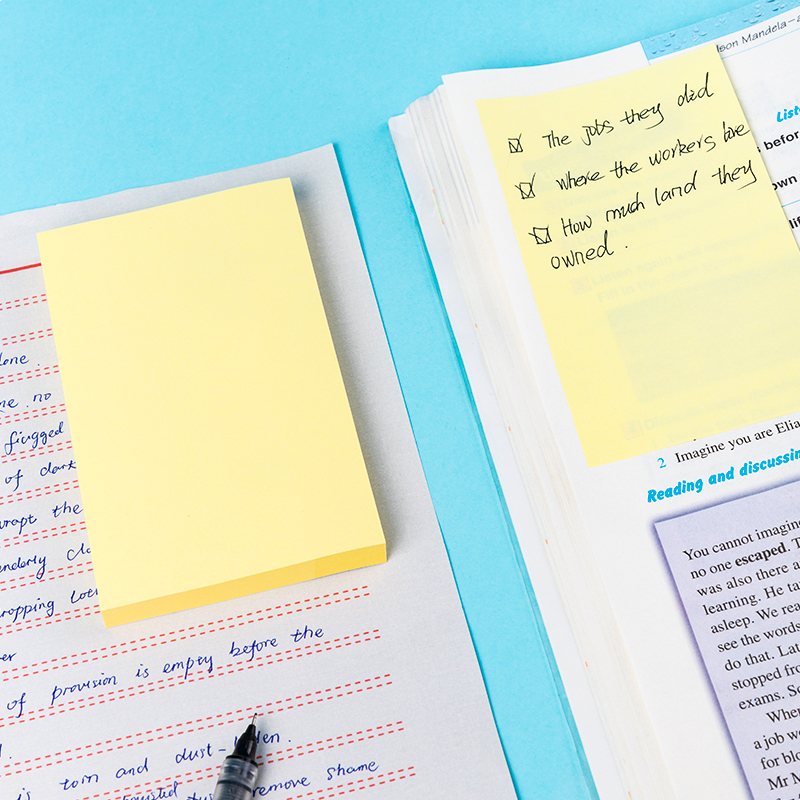 done.
no
of dark
the
of provision is empty before the
is torn and dust-
remove shame
The jobs they did
where the workers live
How much land they
owned.
lson Mandela-a
List
s befor
own
lif
2 Imagine you are Elia
Reading and discussin
You cannot imagin
no one escaped. T
was also there a
learning. He ta
asleep. We rea
see the words
do that. Lat
stopped fro
exams. So
When
a job wo
for blo
Mr M